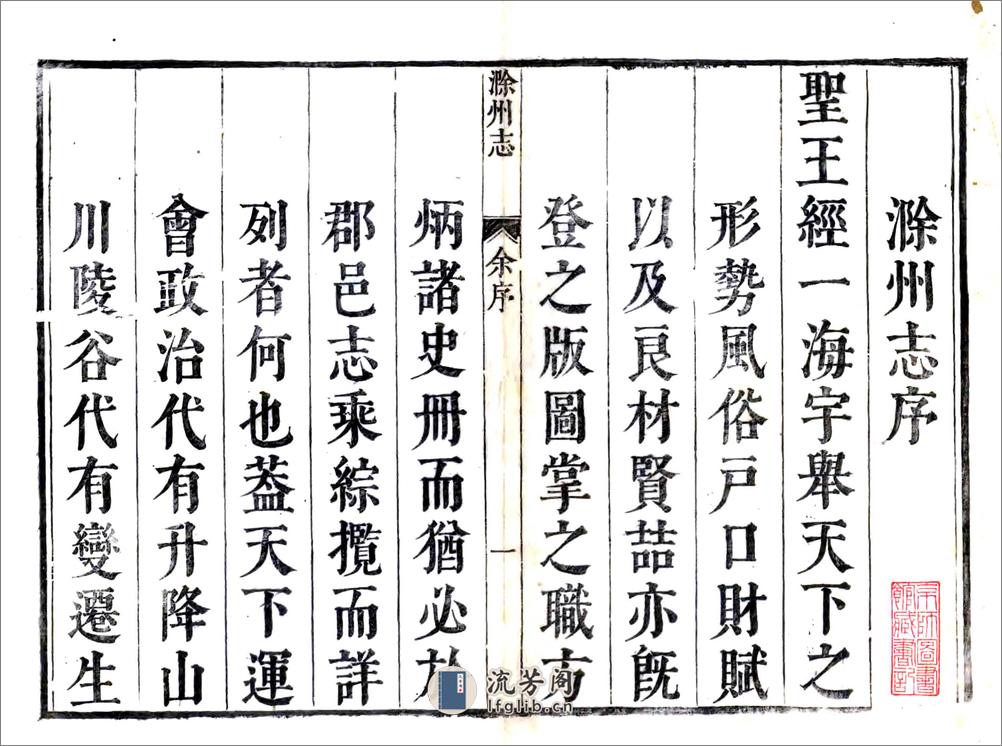 滁州志序
聖王經一海宇舉天下之
形勢風俗戸口財賦
以及良材賢喆亦旣
登之版圖掌之職方
滁州志
余序
一
炳諸史册而猶必於
郡邑志乘綜攬而詳
列者何也葢天下運
會政治代有升降山
川陵谷代有變遷生
流芳阁
lfglib.cn